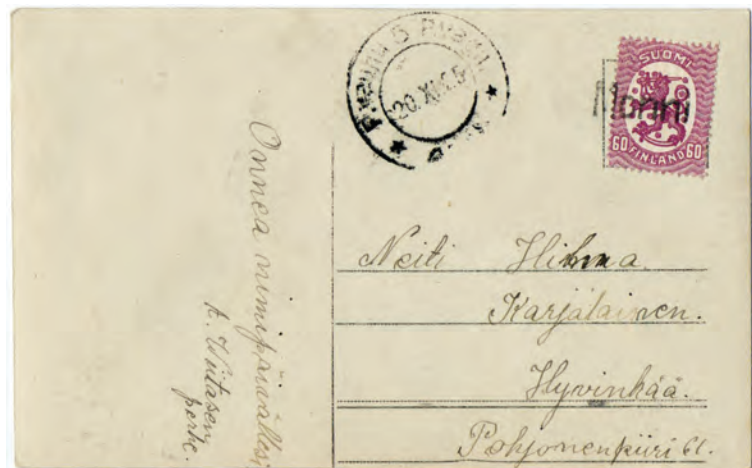 P.vaunu 5 P.vagn.
20. XI.
SUOMI
Monni
60 FINLAND 60
Onnea nimipäivällesi
Wiitasen
perhe.
Neiti Hilma.
Karjälainen.
Hyvinkää.
Pohjonenpiiri 61.